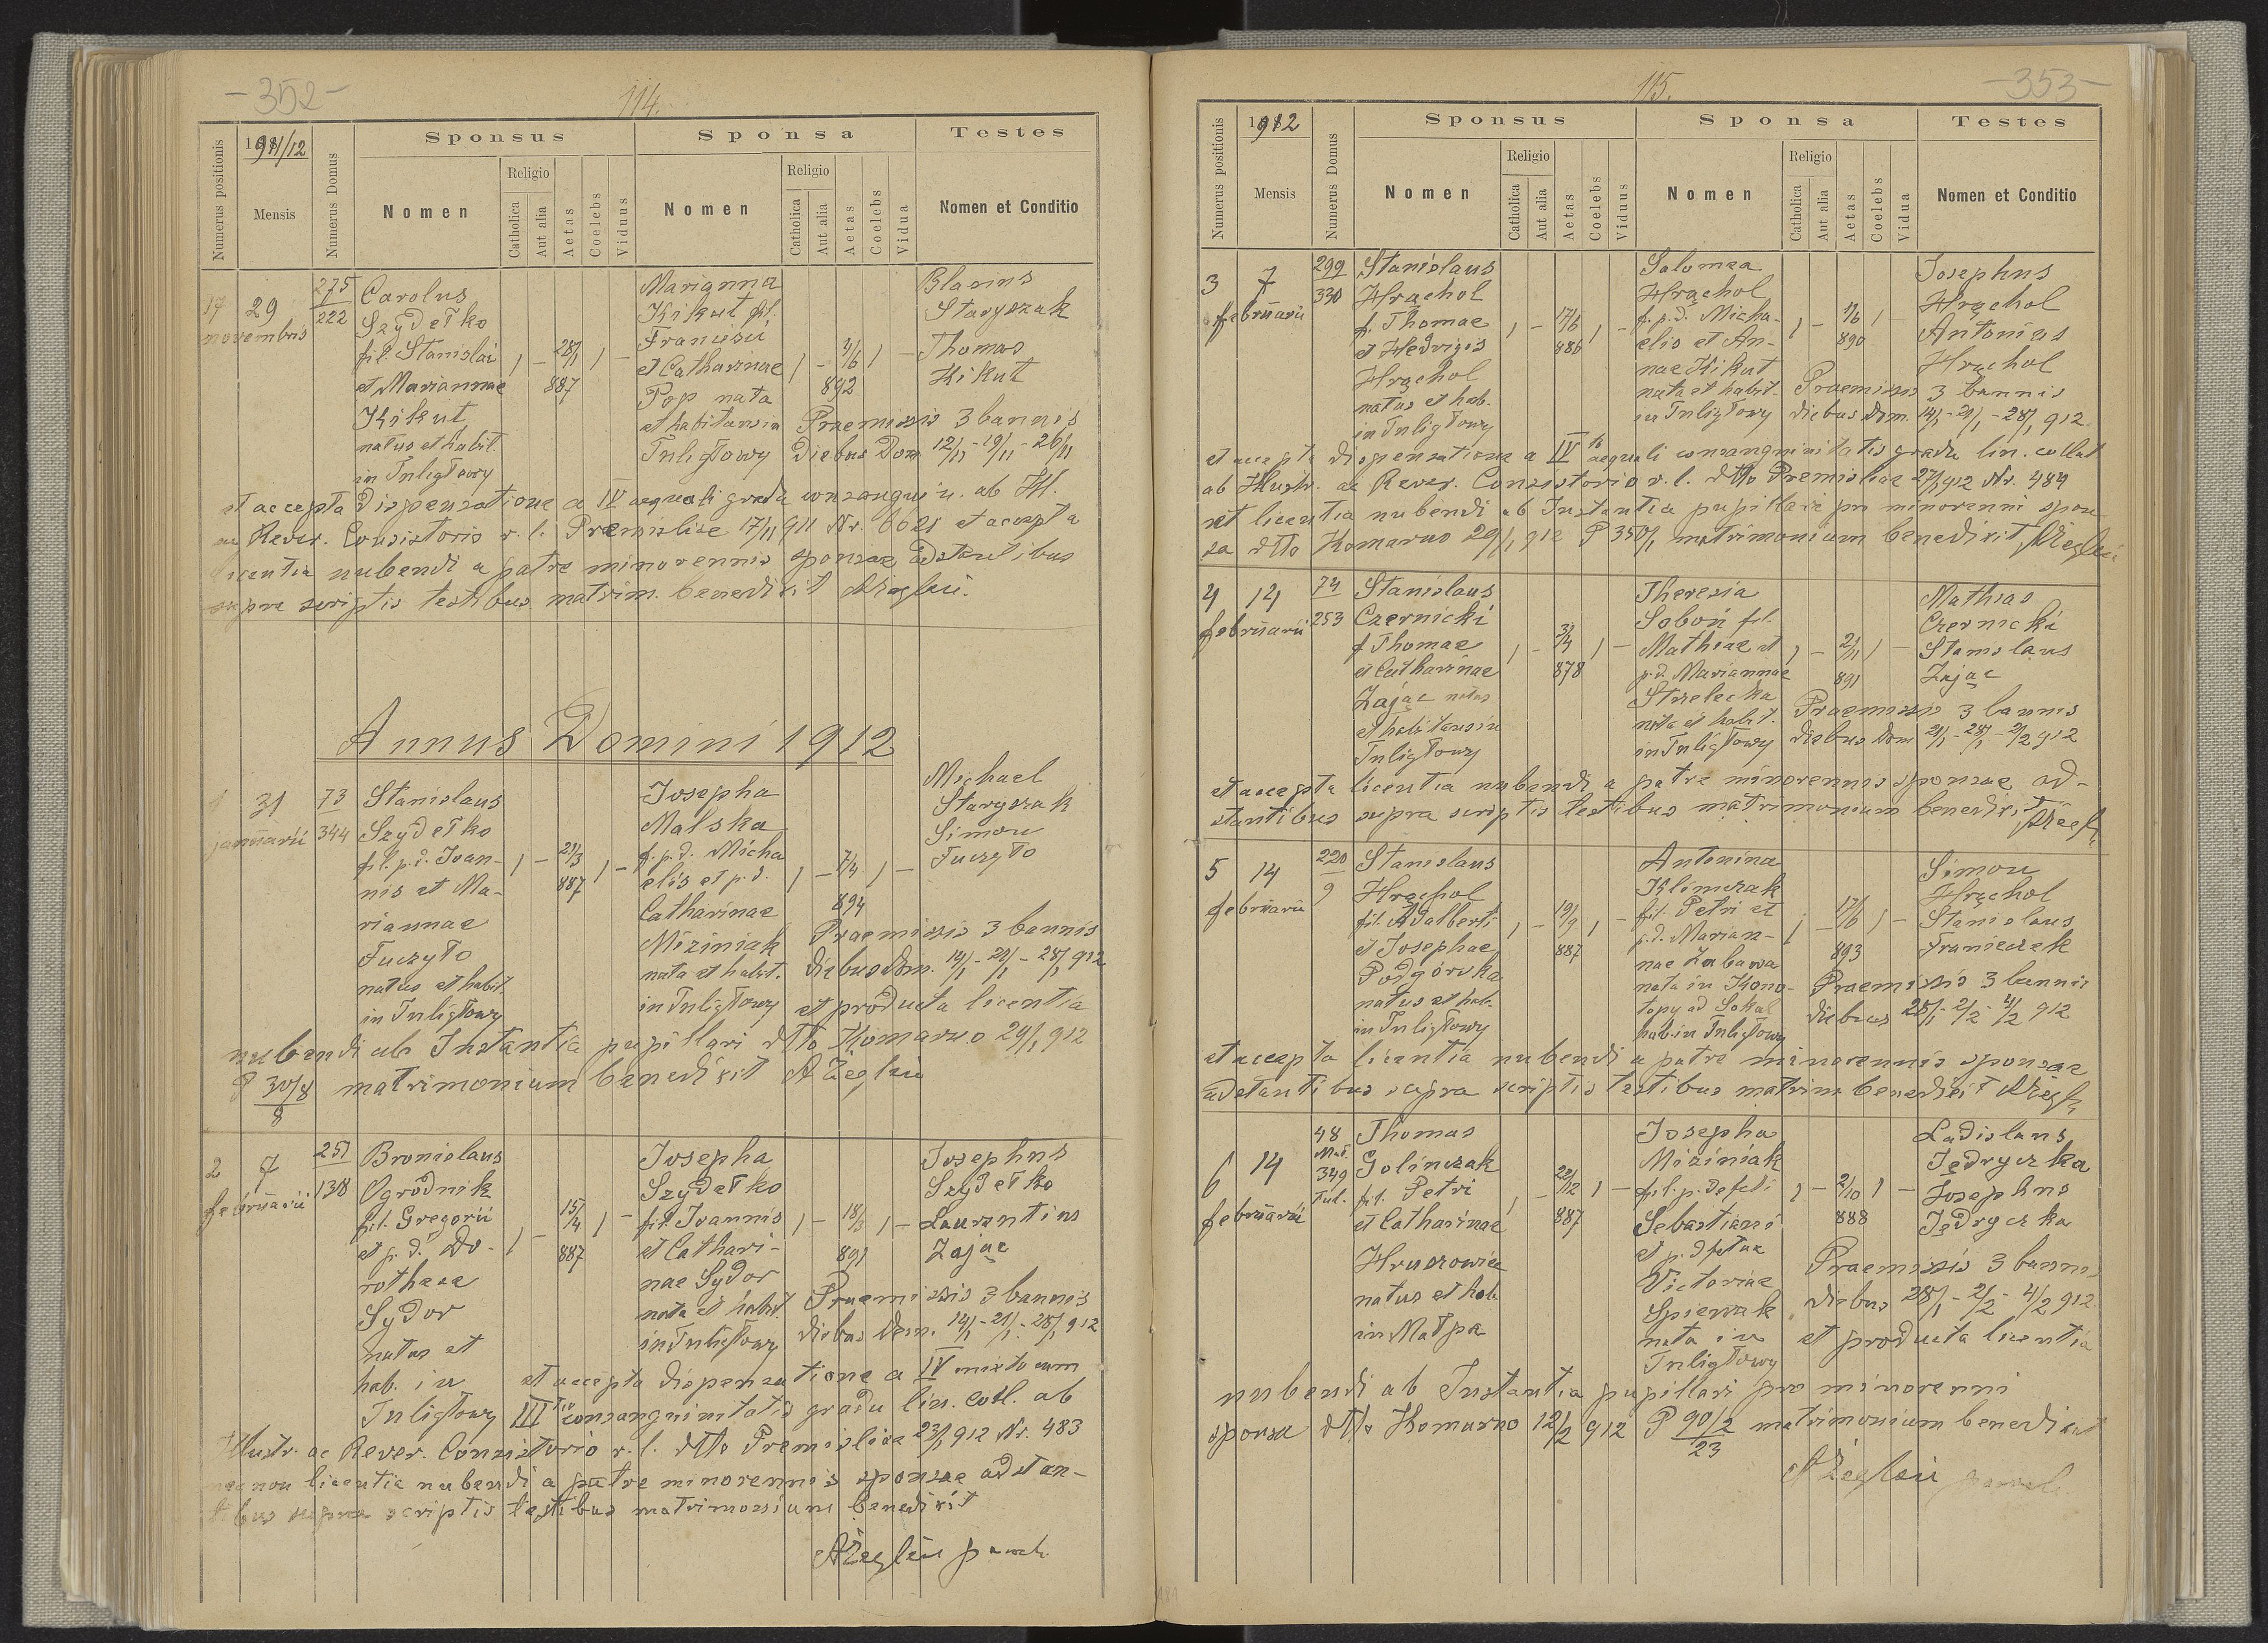 -352-
114.
Numerus positionis
1911/12
Mensis
Numerus Domus
Sponsus
Nomen
Religio
Catholica
Aut alia
Aetas
Coelebs
Viduus
Sponsa
Nomen
Religio
Catholica
Aut alia
Aetas
Coelebs
Vidua
Testes
Nomen et Conditio
17
29
novembris
275
222
Carolus
Szydełko
fil. Stanislai
et Mariannae
Kikut
natus et habit.
in Tuligłowy
1 - 28/1 887 1 -
Marianna
Kikut fil.
Francisci
et Catharinae
Pop nata
et habitans in
Tuligłowy
1 - 4/6 892 1 -
Blasius
Staryszak
Thomas
Kikut
Praemissis 3 bannis
diebus Dom 12/11 - 19/11 - 26/11
et accepta dispensatione a IV aequali gradu consanguin. ab Ill.
ac Rever. Consistorio r. l. Premisliae 17/11 911 Nr. 6021 et accepta
licentia nubendi a patre minorennis sponsae adstantibus
supra scriptis testibus matrim. benedixit AŻegleń.
Annus Domini 1912
1
31
januarii
73
344
Stanislaus
Szydełko
fil. p.d. Joan-
nis et Ma-
riannae
Fuczyło
natus et habit.
in Tuligłowy
1 - 21/3 887 1 -
Josepha
Malska
f. p.d. Micha
elis et p.d.
Catharinae
Miziniak
nata et habit.
in Tuligłowy
1 - 7/4 894 1 -
Michael
Staryszak
Simon
Fuczyło
Praemissis 3 bannis
diebus Dom. 14/1 - 21/1 - 28/1 912
et producta licentia
nubendi ab Instantia pupillari dtto Komarno 24/1 912
P 30/8 / 8 matrimonium benedixit AŻegleń
2
7
februarii
251
138
Bronislaus
Ogrodnik
fil. Gregorii
et p.d. Do-
rotheae
Sydor
natus et
hab. in
Tuligłowy
1 - 15/4 887 1 -
Josepha
Szydełko
fil. Joannis
et Cathari-
nae Sydor
nata et habit.
in Tuligłowy
1 - 18/3 891 1 -
Josephus
Szydełko
Laurentius
Zając
Praemissis 3 bannis
diebus Dom. 14/1 - 21/1 - 28/1 912
et accepta dispensatione a IV mixto cum
III tio consanguinitatis gradu lin. coll. ab
Illustr. ac Rever. Consistorio r. l. dtto Premisliae 23/1 912 Nr. 483
necnon licentia nubendi a patre minorennis sponsae adstan-
tibus supra scriptis testibus matrimonium benedixit
AŻegleń paroch.
115.
-353-
Numerus positionis
1912
Mensis
Numerus Domus
Sponsus
Nomen
Religio
Catholica
Aut alia
Aetas
Coelebs
Viduus
Sponsa
Nomen
Religio
Catholica
Aut alia
Aetas
Coelebs
Vidua
Testes
Nomen et Conditio
3
7
februarii
299
330
Stanislaus
Hrąchol
f. Thomae
et Hedvigis
Hrąchol
natus et hab.
in Tuligłowy
1 - 17/6 886 1 -
Salomea
Hrąchol
f. p.d. Micha-
elis et An-
nae Kikut
nata et habit.
in Tuligłowy
1 - 1/6 890 1 -
Josephus
Hrąchol
Antonius
Hrąchol
Praemissis 3 bannis
diebus Dom. 14/1 - 21/1 - 28/1 912
et accepta dispensatione a IV to aequali consanguinitatis gradu lin. collat
ab Illustr. ac Rever. Consistorio r. l. dtto Premisliae 27/1 912 Nr. 484
et licentia nubendi ab Instantia pupillari pro minorenni spon
sa dtto Komarno 29/1 912 P 350/1 matrimonium benedixit AŻegleń
4
14
februarii
74
253
Stanislaus
Czernicki
f Thomae
et Catharinae
Zając natus
et habitans in
Tuligłowy
1 - 3/4 878 1 -
Theresia
Soboń fil.
Mathiae et
p.d. Mariannae
Strzelecka
nata et habit.
in Tuligłowy
1 - 2/11 891 1 -
Mathias
Czernicki
Stanislaus
Zając
Praemissis 3 bannis
diebus Dom 21/1 - 28/1 - 2/2 912
et accepta licentia nubendi a patre minorennis sponsae ad-
stantibus supra scriptis testibus matrimonium benedixit AŻegl.
5
14
februarii
220
9
Stanislaus
Hrąchol
fil. Adalberti
et Josephae
Podgórska
natus et hab.
in Tuligłowy
1 - 19/9 887 1 -
Antonina
Klimczak
fil. Petri et
p.d. Marian-
nae Zabawa
nata in Kono-
topy ad Sokal
hab. in Tuligłowy
1 - 17/6 893 1 -
Simon
Hrąchol
Stanislaus
Franieczek
Praemissis 3 bannis
diebus 28/1 - 2/2 - 4/2 912
et accepta licentia nubendi a patre minorennis sponsae
adstantibus supra scriptis testibus matrim. benedixit AŻegl.
6
14
februarii
48
Mał.
349
Tul.
Thomas
Golinczak
fil. Petri
et Catharinae
Hruszowiec
natus et hab.
in Małpa
1 - 22/12 887 1 -
Josepha
Miziniak
fil. p. defcti
Sebastiani
et p. dfctae
Victoriae
Spiewak
nata in
Tuligłowy
1 - 2/10 888 1 -
Ladislaus
Jędryczka
Josephus
Jędryczka
Praemissis 3 bannis
diebus 28/1 - 2/2 - 4/2 912
et producta licentia
nubendi ab Instantia pupillari pro minorenni
sponsa dtto Komarno 12/2 912 P 90/2 / 23 matrimonium benedixit
AŻegleń paroch.